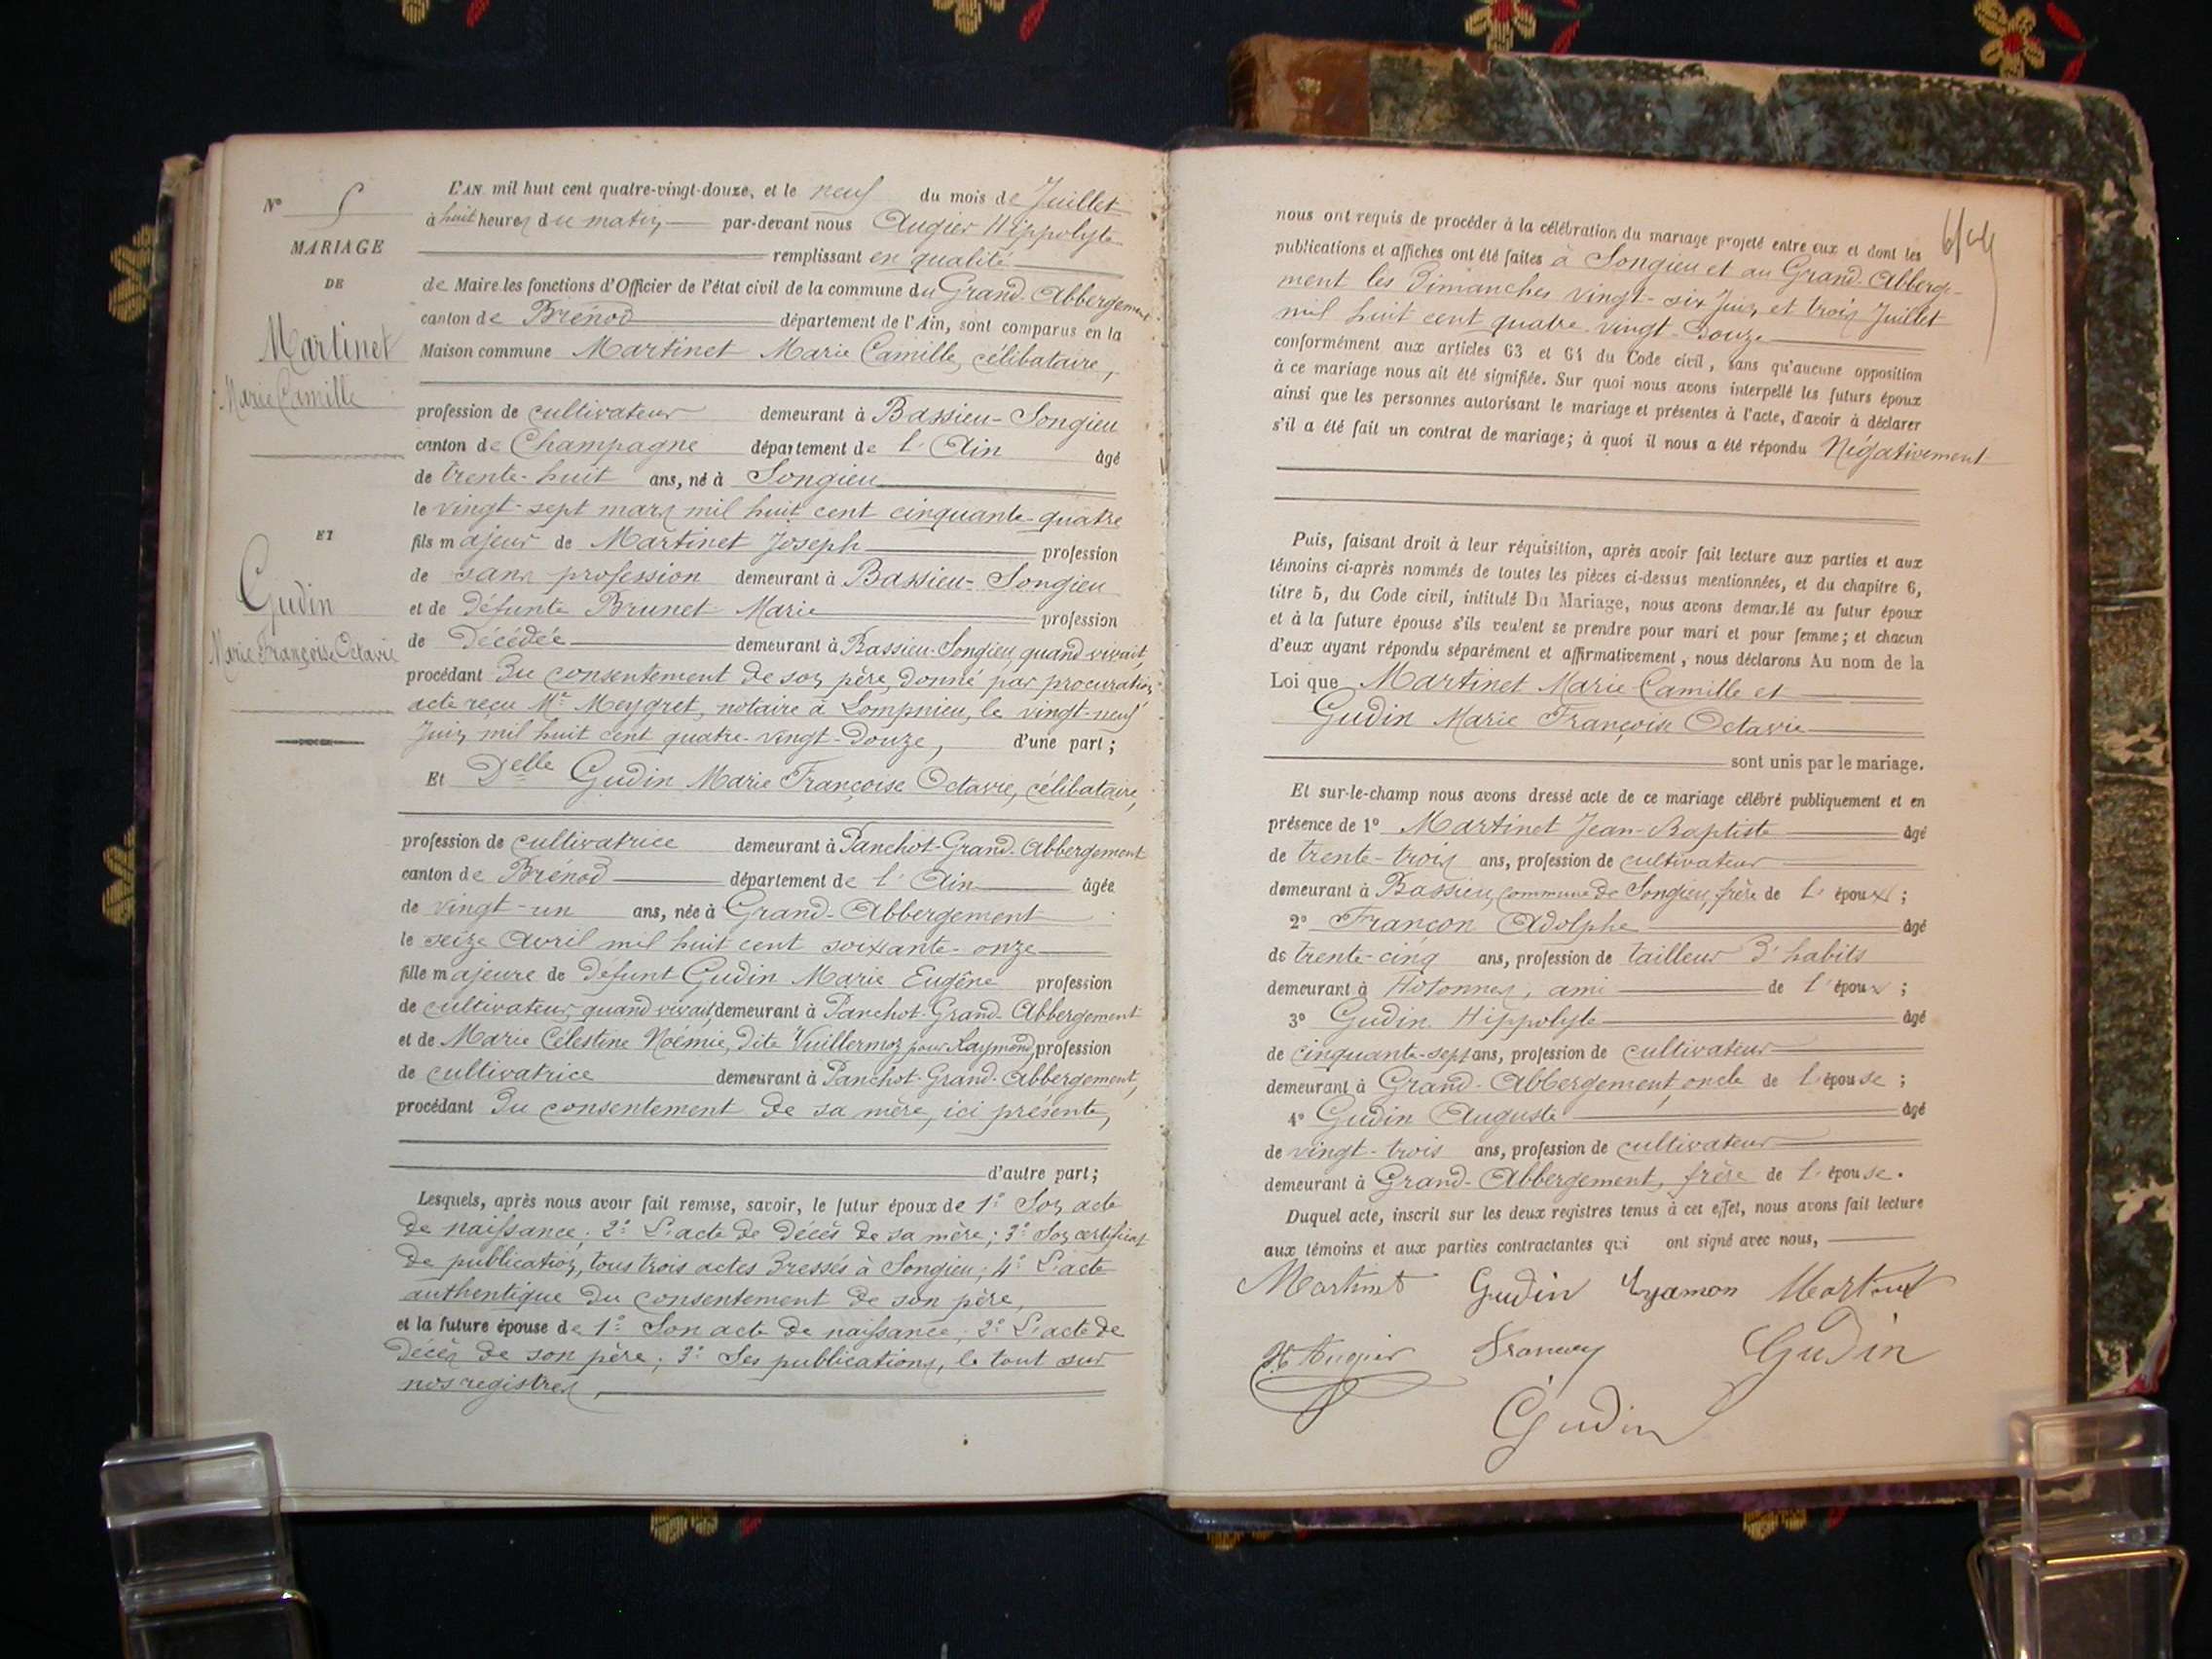 N° 5
MARIAGE
DE
Martinet
Marie Camille
ET
Gudin
Marie Françoise Octavie
L'AN mil huit cent quatre-vingt-douze, et le neuf du mois de Juillet
à huit heures du matin, par-devant nous Augier Hippolyte
remplissant en qualité
de Maire les fonctions d'Officier de l'état civil de la commune du Grand-Abbergement
canton de Brénod département de l'Ain, sont comparus en la
Maison commune Martinet Marie Camille, célibataire,
profession de cultivateur demeurant à Bassieu-Songieu
canton de Champagne département de l'Ain âgé
de trente-huit ans, né à Songieu
le vingt-sept mars mil huit cent cinquante-quatre
fils majeur de Martinet Joseph profession
de sans profession demeurant à Bassieu-Songieu
et de défunte Brunet Marie profession
de Décédée demeurant à Bassieu-Songieu quand vivait,
procédant du consentement de son père, donné par procuration,
acte reçu Mr Meygret, notaire à Lompnieu, le vingt-neuf
Juin mil huit cent quatre-vingt-douze, d'une part;
Et Delle Gudin Marie Françoise Octavie, célibataire,
profession de cultivatrice demeurant à Panchot-Grand-Abbergement
canton de Brénod département de l'Ain âgée
de vingt-un ans, née à Grand-Abbergement
le seize Avril mil huit cent soixante-onze
fille majeure de défunt Gudin Marie Eugêne profession
de cultivateur, quand vivait, demeurant à Panchot-Grand-Abbergement
et de Marie Célestine Noémie, dite Vuillermoz pour Raymond, profession
de cultivatrice demeurant à Panchot-Grand-Abbergement,
procédant du consentement de sa mère, ici présente,
d'autre part;
Lesquels, après nous avoir fait remise, savoir, le futur époux de 1° Son acte
de naissance; 2° L'acte de décès de sa mère; 3° Son certificat
de publication, tous trois actes dressés à Songieu; 4° L'acte
authentique du consentement de son père,
et la future épouse de 1° Son acte de naissance; 2° L'acte de
décès de son père; 3° Ses publications, le tout sur
nos registres,
nous ont requis de procéder à la célébration du mariage projeté entre eux et dont les
publications et affiches ont été faites à Songieu et au Grand-Abberge-
ment les Dimanches vingt-six Juin et trois Juillet
mil huit cent quatre-vingt-douze
conformément aux articles 63 et 64 du Code civil, sans qu'aucune opposition
à ce mariage nous ait été signifiée. Sur quoi nous avons interpellé les futurs époux
ainsi que les personnes autorisant le mariage et présentes à l'acte, d'avoir à déclarer
s'il a été fait un contrat de mariage; à quoi il nous a été répondu Négativement
Puis, faisant droit à leur réquisition, après avoir fait lecture aux parties et aux
témoins ci-après nommés de toutes les pièces ci-dessus mentionnées, et du chapitre 6,
titre 5, du Code civil, intitulé Du Mariage, nous avons demandé au futur époux
et à la future épouse s'ils veulent se prendre pour mari et pour femme; et chacun
d'eux ayant répondu séparément et affirmativement, nous déclarons Au nom de la
Loi que Martinet Marie Camille et
Gudin Marie Françoise Octavie
sont unis par le mariage.
Et sur-le-champ nous avons dressé acte de ce mariage célébré publiquement et en
présence de 1° Martinet Jean-Baptiste âgé
de trente-trois ans, profession de cultivateur
demeurant à Bassieu, commune de Songieu, frère de l'époux;
2° Françon Adolphe âgé
de trente-cinq ans, profession de tailleur d'habits
demeurant à Hotonnes, ami de l'époux;
3° Gudin Hippolyte âgé
de cinquante-sept ans, profession de cultivateur
demeurant à Grand-Abbergement, oncle de l'épouse;
4° Gudin Auguste âgé
de vingt-trois ans, profession de cultivateur
demeurant à Grand-Abbergement, frère de l'épouse.
Duquel acte, inscrit sur les deux registres tenus à cet effet, nous avons fait lecture
aux témoins et aux parties contractantes qui ont signé avec nous,
Martinet Gudin Martinet
Hte Augier Gudin
Gudin